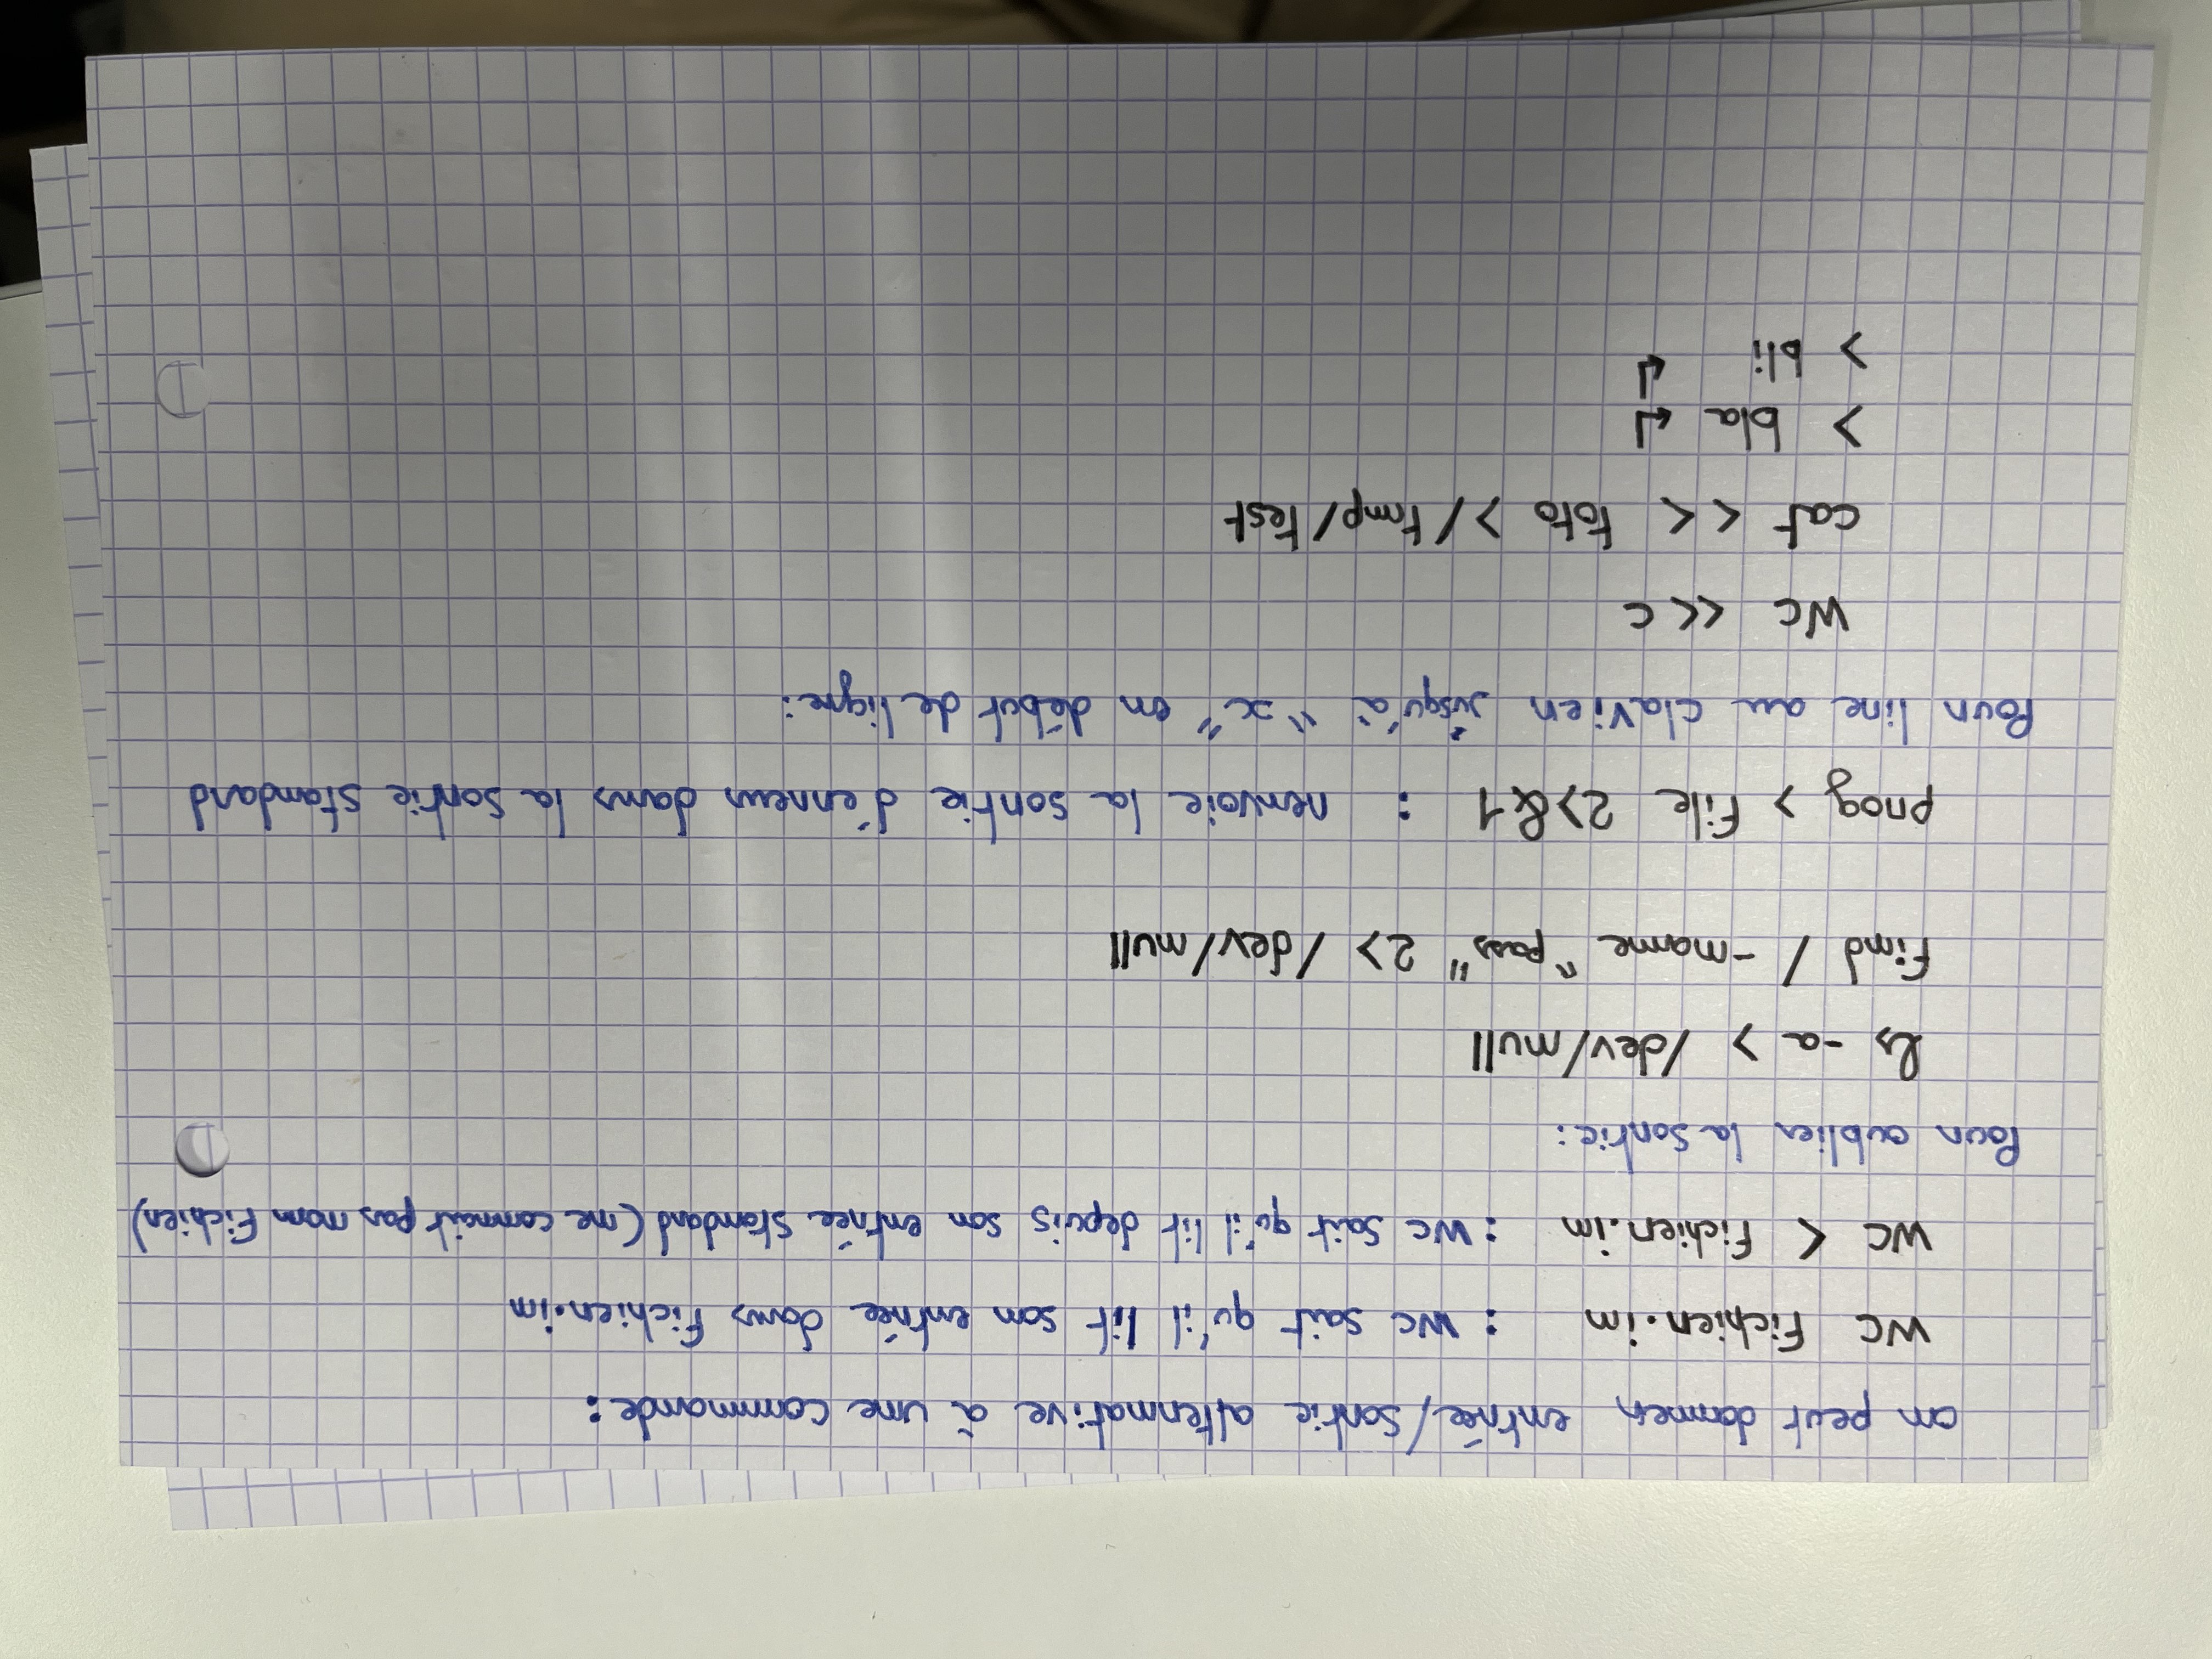 on peut donner entrée/sortie alternative à une commande :
wc fichier.in : wc sait qu'il lit son entrée dans fichier.in
wc < fichier.in : wc sait qu'il lit depuis son entrée standard (ne connait pas nom fichier)
Pour oublier la sortie :
ls -a > /dev/null
find / -name "pass" 2> /dev/null
prog > file 2>&1 : renvoie la sortie d'erreur dans la sortie standard
Pour lire au clavier jusqu'à "x" en début de ligne :
wc << c
cat << toto > /tmp/test
> bla ↵
> bli ↵